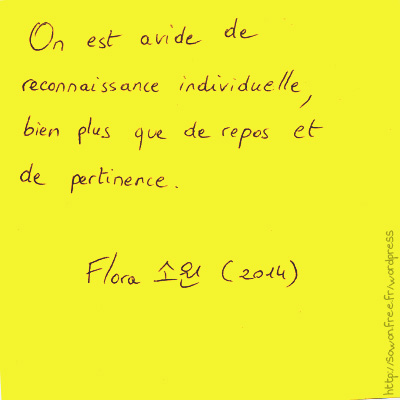 On est avide de
reconnaissance individuelle,
bien plus que de repos et
de pertinence.
Flora 소원 (2014)
http://sowon.free.fr/wordpress